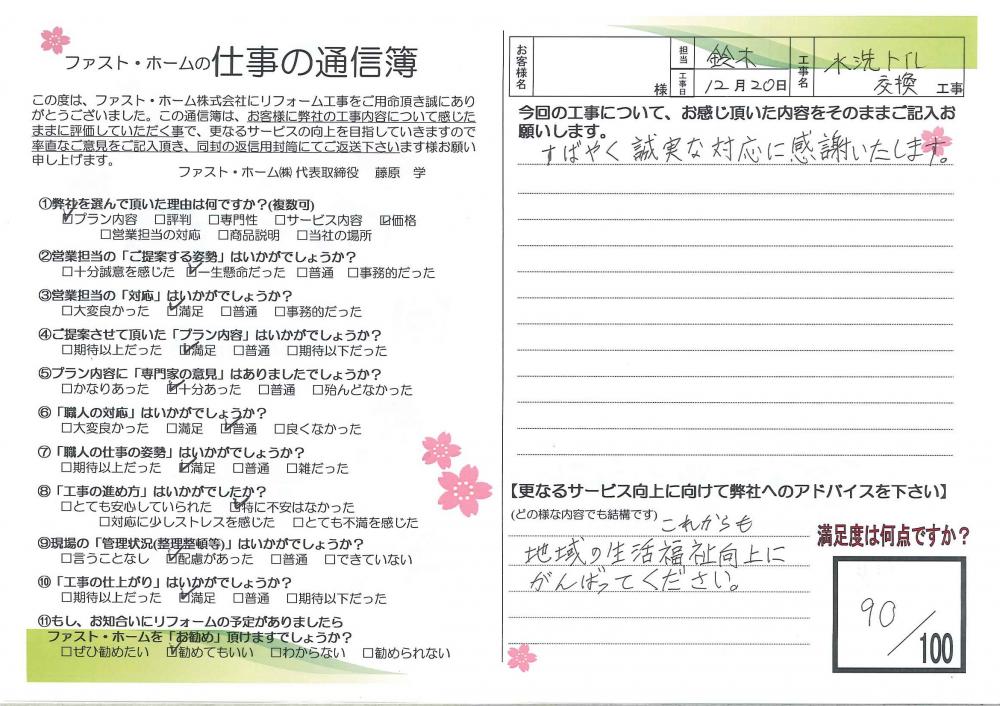 ファスト・ホームの仕事の通信簿
この度は、ファスト・ホーム株式会社にリフォーム工事をご用命頂き誠にあり
がとうございました。この通信簿は、お客様に弊社の工事内容について感じた
ままに評価していただく事で、更なるサービスの向上を目指していきますので
率直なご意見をご記入頂き、同封の返信用封筒にてご返送下さいます様お願い
申し上げます。
ファスト・ホーム㈱ 代表取締役 藤原 学
①弊社を選んで頂いた理由は何ですか?(複数可)
☑プラン内容 □評判 □専門性 □サービス内容 ☑価格
□営業担当の対応 □商品説明 □当社の場所
②営業担当の「ご提案する姿勢」はいかがでしょうか?
□十分誠意を感じた ☑一生懸命だった □普通 □事務的だった
③営業担当の「対応」はいかがでしょうか?
□大変良かった ☑満足 □普通 □事務的だった
④ご提案させて頂いた「プラン内容」はいかがでしょうか?
□期待以上だった ☑満足 □普通 □期待以下だった
⑤プラン内容に「専門家の意見」はありましたでしょうか?
□かなりあった ☑十分あった □普通 □殆んどなかった
⑥「職人の対応」はいかがでしょうか?
□大変良かった □満足 ☑普通 □良くなかった
⑦「職人の仕事の姿勢」はいかがでしょうか?
□期待以上だった ☑満足 □普通 □雑だった
⑧「工事の進め方」はいかがでしたか?
□とても安心していられた ☑特に不安はなかった
□対応に少しストレスを感じた □とても不満を感じた
⑨現場の「管理状況(整理整頓等)」はいかがでしょうか?
□言うことなし ☑配慮があった □普通 □できていない
⑩「工事の仕上がり」はいかがでしょうか?
□期待以上だった ☑満足 □普通 □期待以下だった
⑪もし、お知合いにリフォームの予定がありましたら
ファスト・ホームを「お勧め」頂けますでしょうか?
□ぜひ勧めたい ☑勧めてもいい □わからない □勧められない
お客様名 様 担当 鈴木 工事名 水洗トイレ
工事日 12月20日 交換 工事
今回の工事について、お感じ頂いた内容をそのままご記入お
願いします。
すばやく誠実な対応に感謝いたします。
【更なるサービス向上に向けて弊社へのアドバイスを下さい】
(どの様な内容でも結構です) これからも
地域の生活福祉向上に
がんばってください。
満足度は何点ですか?
90/100